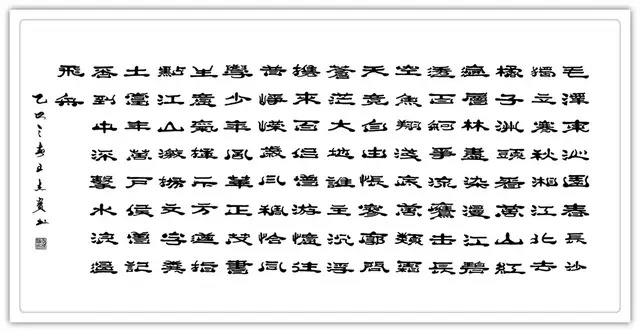 毛澤東沁園春長沙
獨立寒秋湘江北去
橘子洲頭看萬山紅
遍層林盡染漫江碧
透百舸爭流鷹擊長
空魚翔淺底萬類霜
天競自由悵寥廓問
蒼茫大地誰主沉浮
攜來百侶曾游憶往
昔崢嶸歲月稠恰同
學少年風華正茂書
生意氣揮斥方遒指
點江山激揚文字糞
土當年萬戶侯曾記
否到中流擊水浪遏
飛舟
乙巳之春